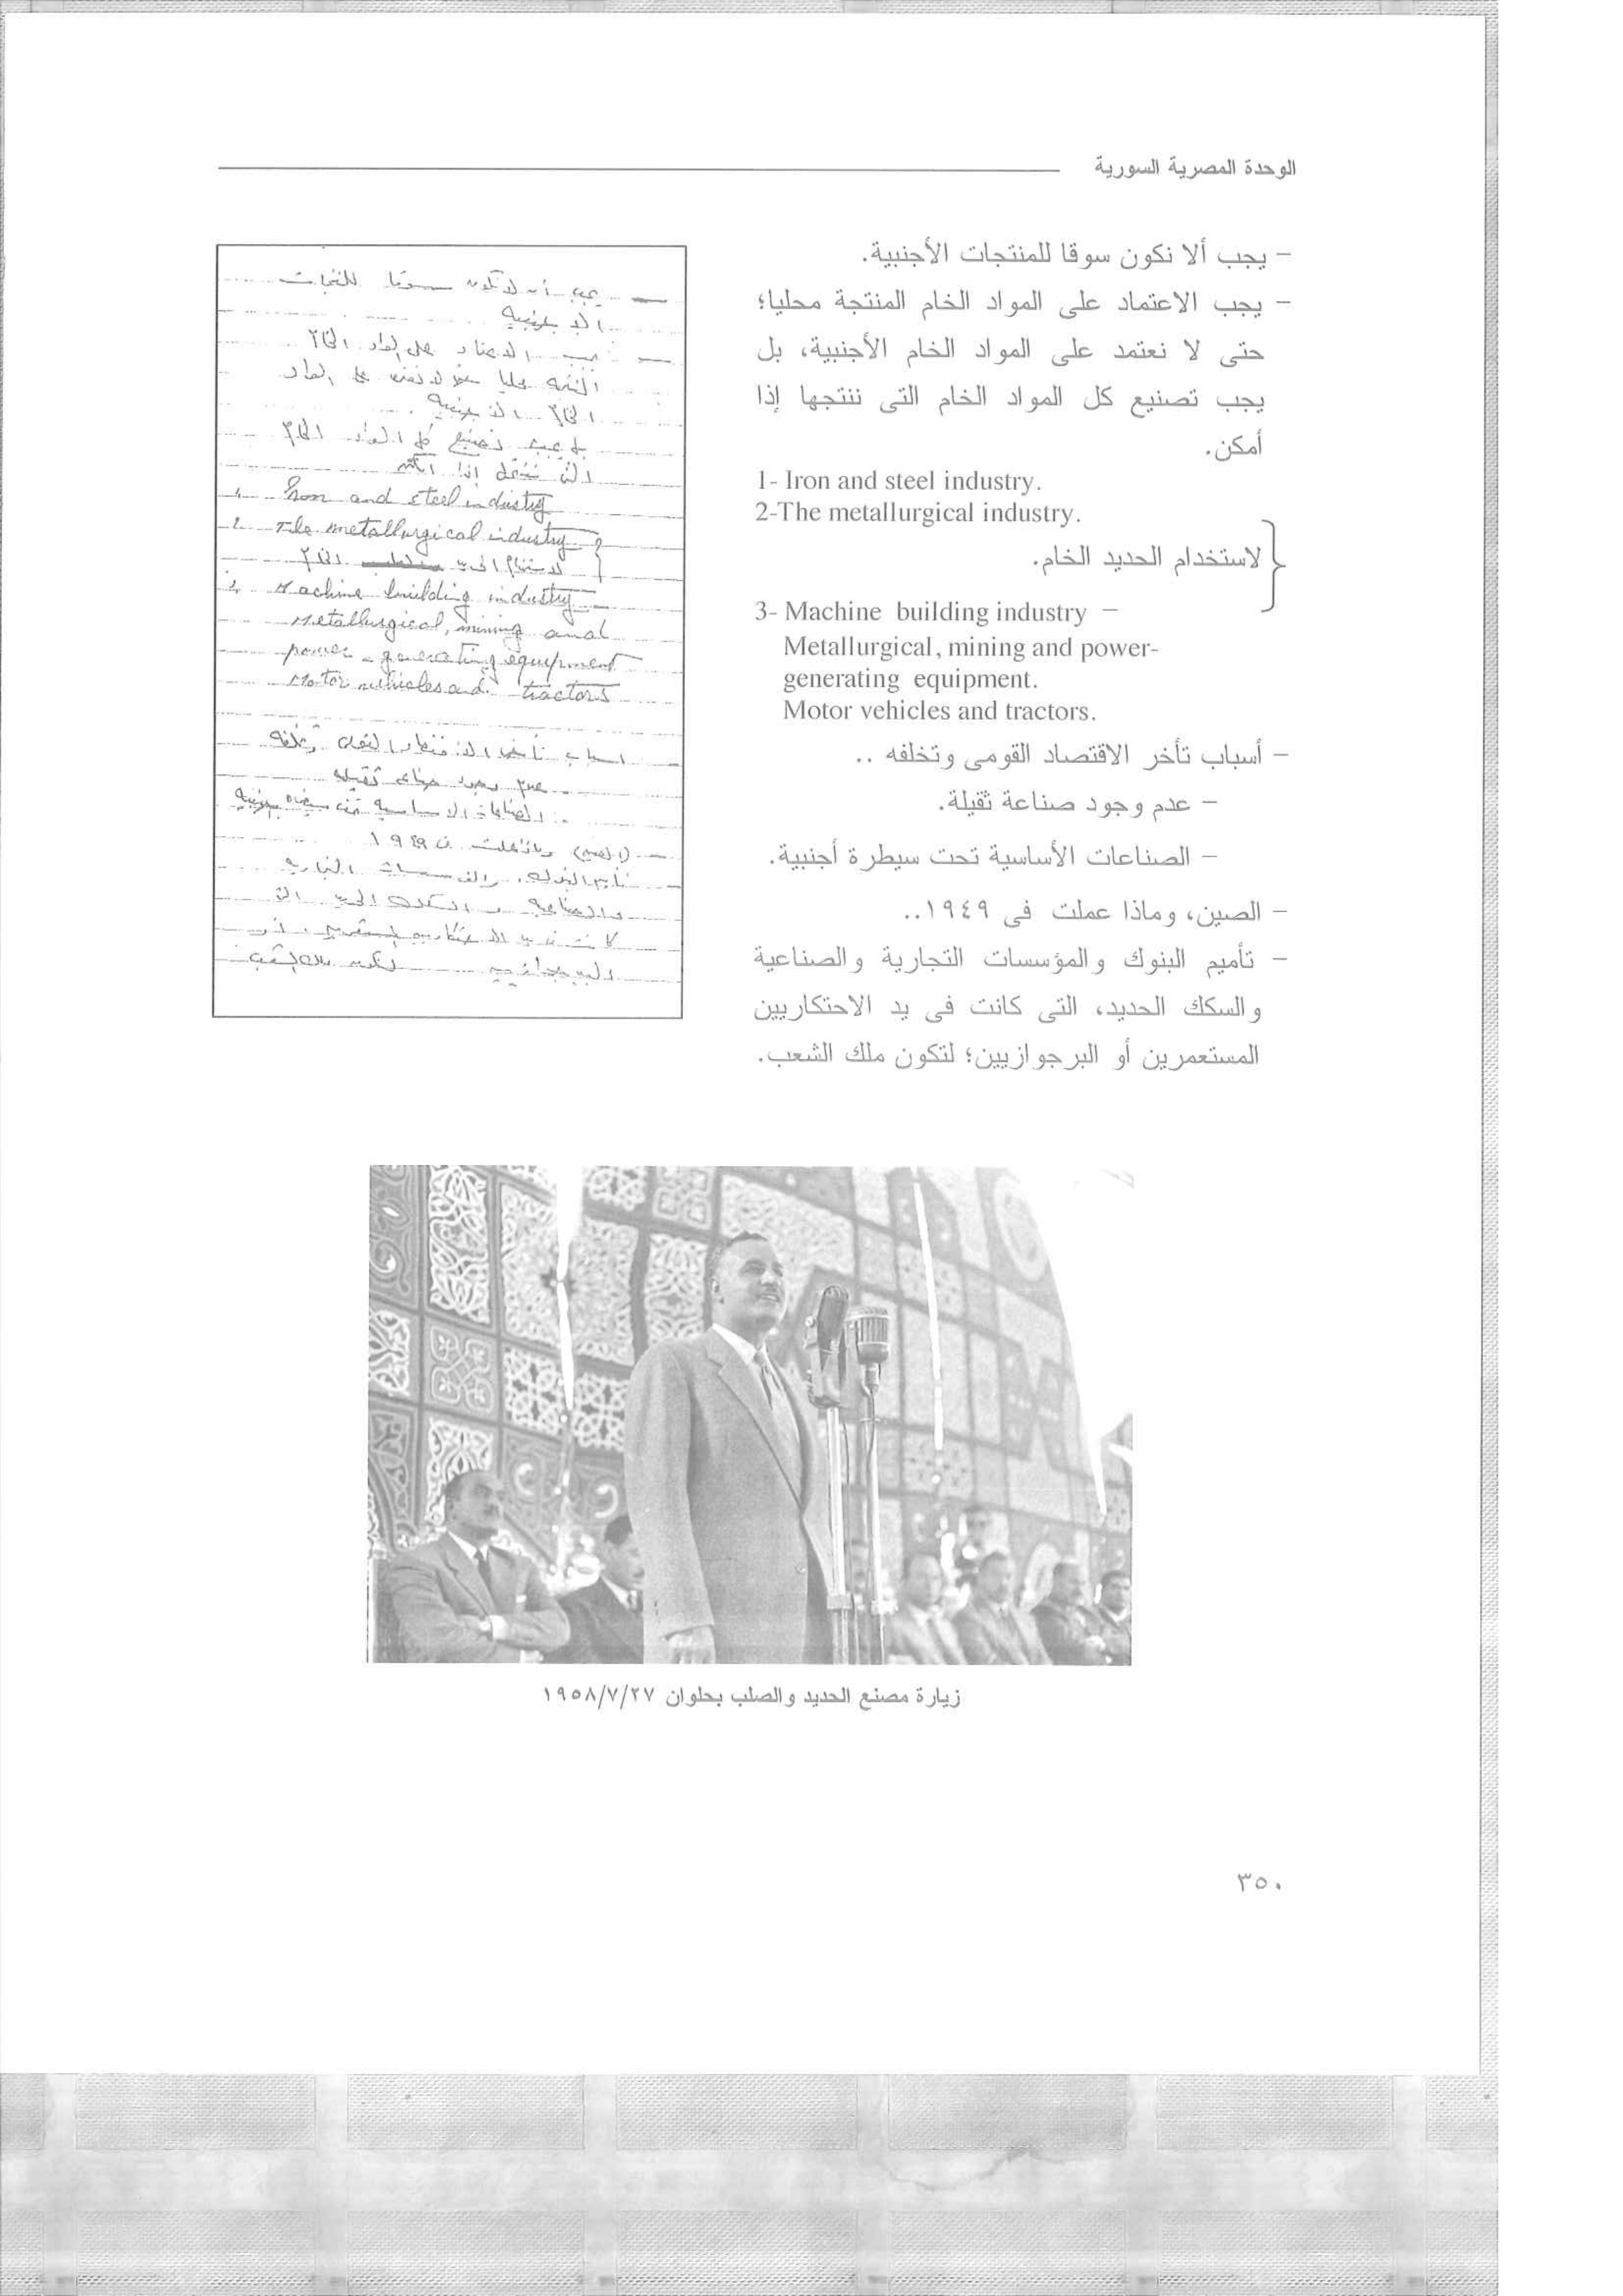 الوحدة المصرية السورية
– يجب ألا نكون سوقا للمنتجات الأجنبية.
– يجب الاعتماد على المواد الخام المنتجة محليا؛
حتى لا نعتمد على المواد الخام الأجنبية، بل
يجب تصنيع كل المواد الخام التى ننتجها إذا
أمكن.
1- Iron and steel industry.
2-The metallurgical industry.
لاستخدام الحديد الخام.
3- Machine building industry –
Metallurgical, mining and power-
generating equipment.
Motor vehicles and tractors.
– أسباب تأخر الاقتصاد القومى وتخلفه ..
– عدم وجود صناعة ثقيلة.
– الصناعات الأساسية تحت سيطرة أجنبية.
– الصين، وماذا عملت فى ١٩٤٩..
– تأميم البنوك والمؤسسات التجارية والصناعية
والسكك الحديد، التى كانت فى يد الاحتكاريين
المستعمرين أو البرجوازيين؛ لتكون ملك الشعب.
— يجب أن لا نكون سوقا للمنتجات
الأجنبية
— يجب الاعتماد على المواد الخام
المنتجة محليا حتى لا نعتمد على المواد
الخام الأجنبية
بل يجب تصنيع كل المواد الخام
1. Iron and steel industry
2. The metallurgical industry
3. Machine building industry
Metallurgical, mining and
power-generating equipment
Motor vehicles and tractors
اسباب تأخر الاقتصاد القومى وتخلفه
عدم وجود صناعه ثقيله
الصناعات الاساسيه تحت سيطره اجنبيه
— (الصين) وماذا عملت فى ١٩٤٩
تأميم البنوك والمؤسسات التجاريه
والصناعيه والسكك الحديد التى
زيارة مصنع الحديد والصلب بحلوان ١٩٥٨/٧/٢٧
٣٥٠